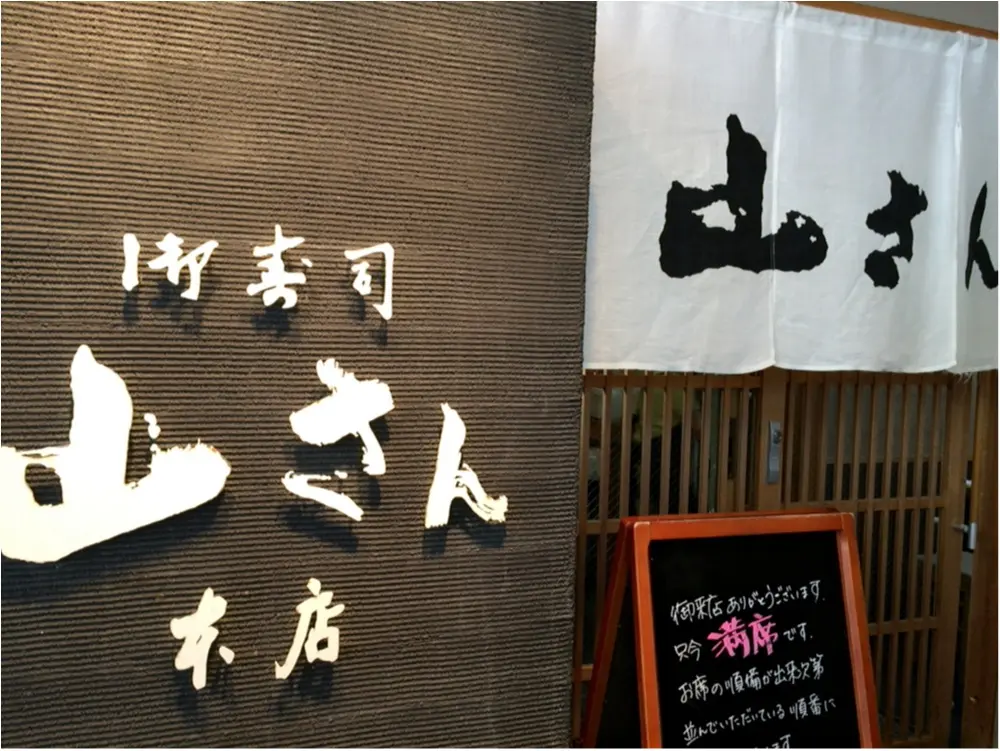 御寿司
山さん
本店
山さん
御来店ありがとうございます.
只今満席です.
お席の順備が出来次第
並んでいただいている順番に
ます